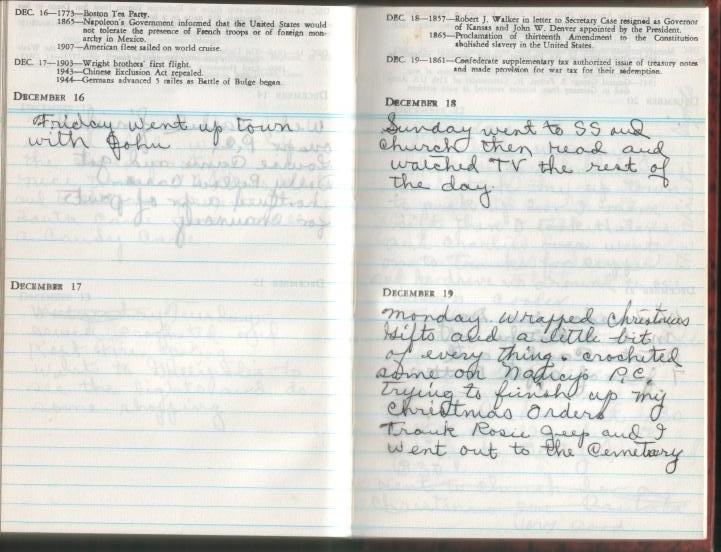 DEC. 16—1773—Boston Tea Party.
1865—Napoleon's Government informed that the United States would
not tolerate the presence of French troops or of foreign mon-
archy in Mexico.
1907—American fleet sailed on world cruise.
DEC. 17—1903—Wright brothers' first flight.
1943—Chinese Exclusion Act repealed.
1944—Germans advanced 5 miles as Battle of Bulge began.
DECEMBER 16
Friday went up town
with John
DECEMBER 17
DEC. 18—1857—Robert J. Walker in letter to Secretary Case resigned as Governor
of Kansas and John W. Denver appointed by the President.
1865—Proclamation of thirteenth Amendment to the Constitution
abolished slavery in the United States.
DEC. 19—1861—Confederate supplementary tax authorized issue of treasury notes
and made provision for war tax for their redemption.
DECEMBER 18
Sunday went to SS and
church then read and
watched TV the rest of
the day.
DECEMBER 19
Monday wrapped Christmas
Gifts and a little bit
of every thing. crocheted
some on Nancys P.C.
trying to finish up my
Christmas Orders
Frank Rosie Jeep and I
went out to the Cemetary